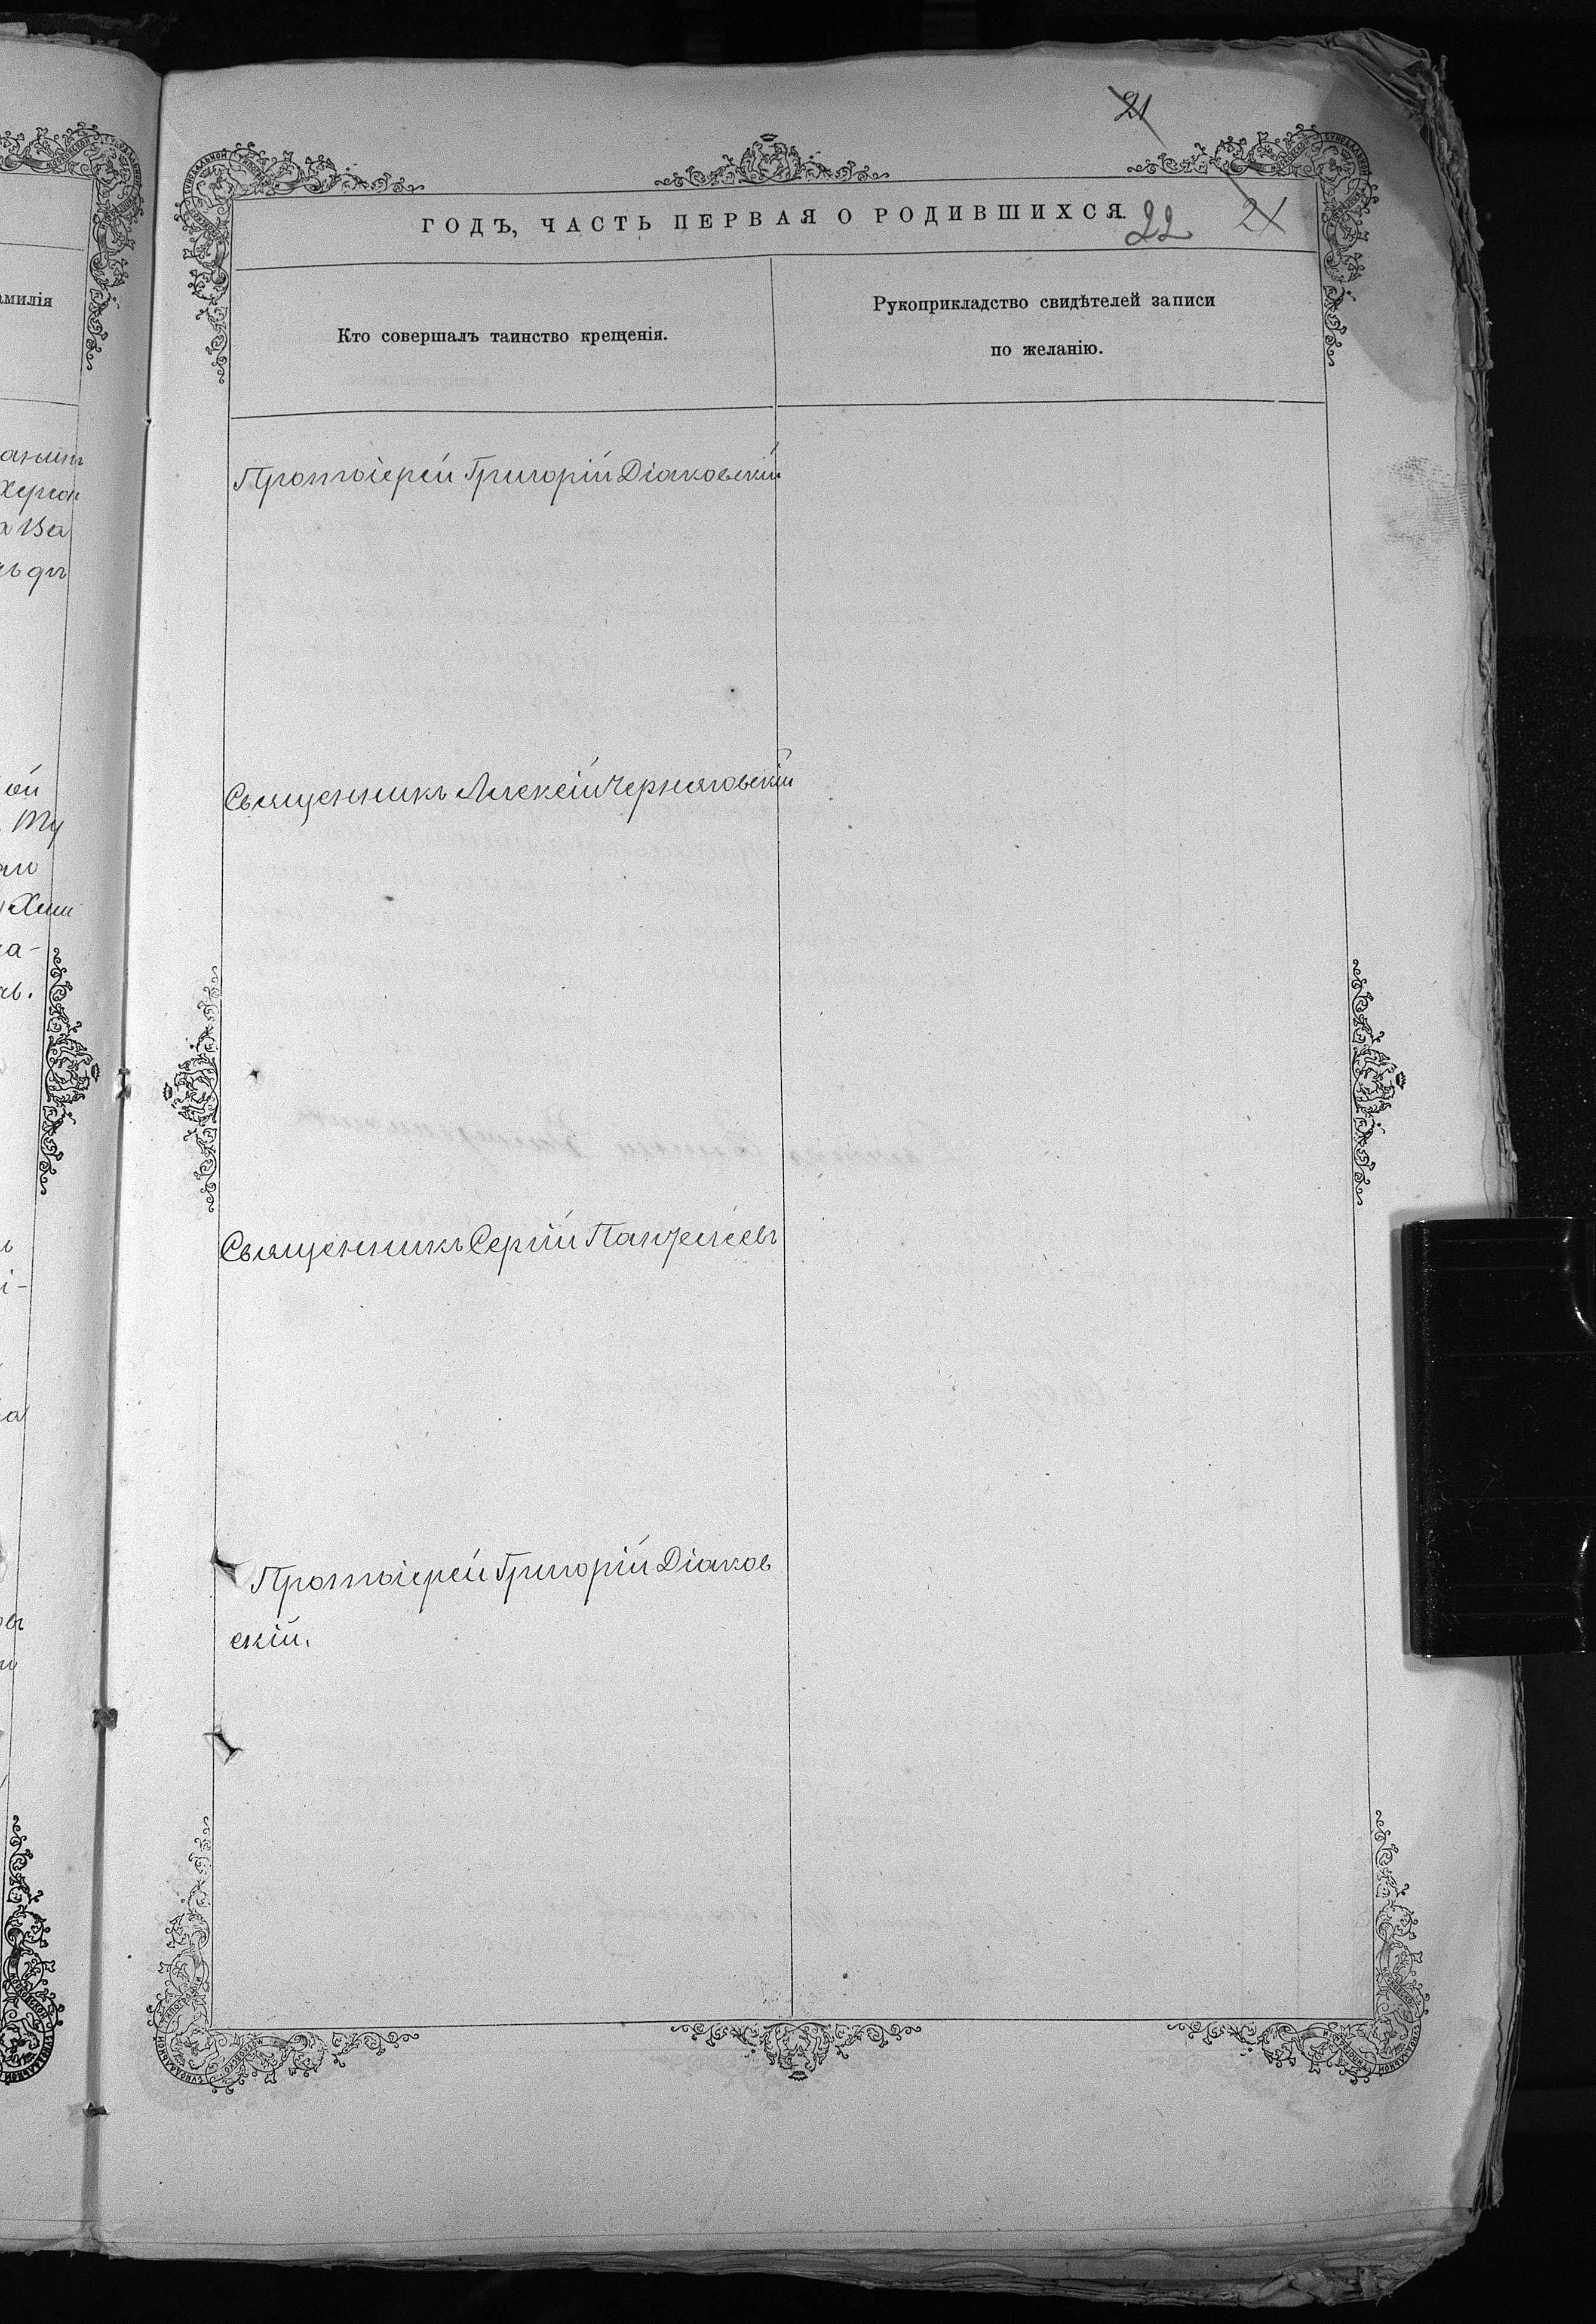 21
ГОДЪ, ЧАСТЬ ПЕРВАЯ О РОДИВШИХСЯ.
22
21
Кто совершалъ таинство крещенія.
Рукоприкладство свидѣтелей записи
по желанію.
Протоіерей Григорій Діаковскій
Священникъ Алексій Черняговскій
Священникъ Сергій Пантелеевъ
Протоіерей Григорій Діаков
скій.
амилія
Херсон